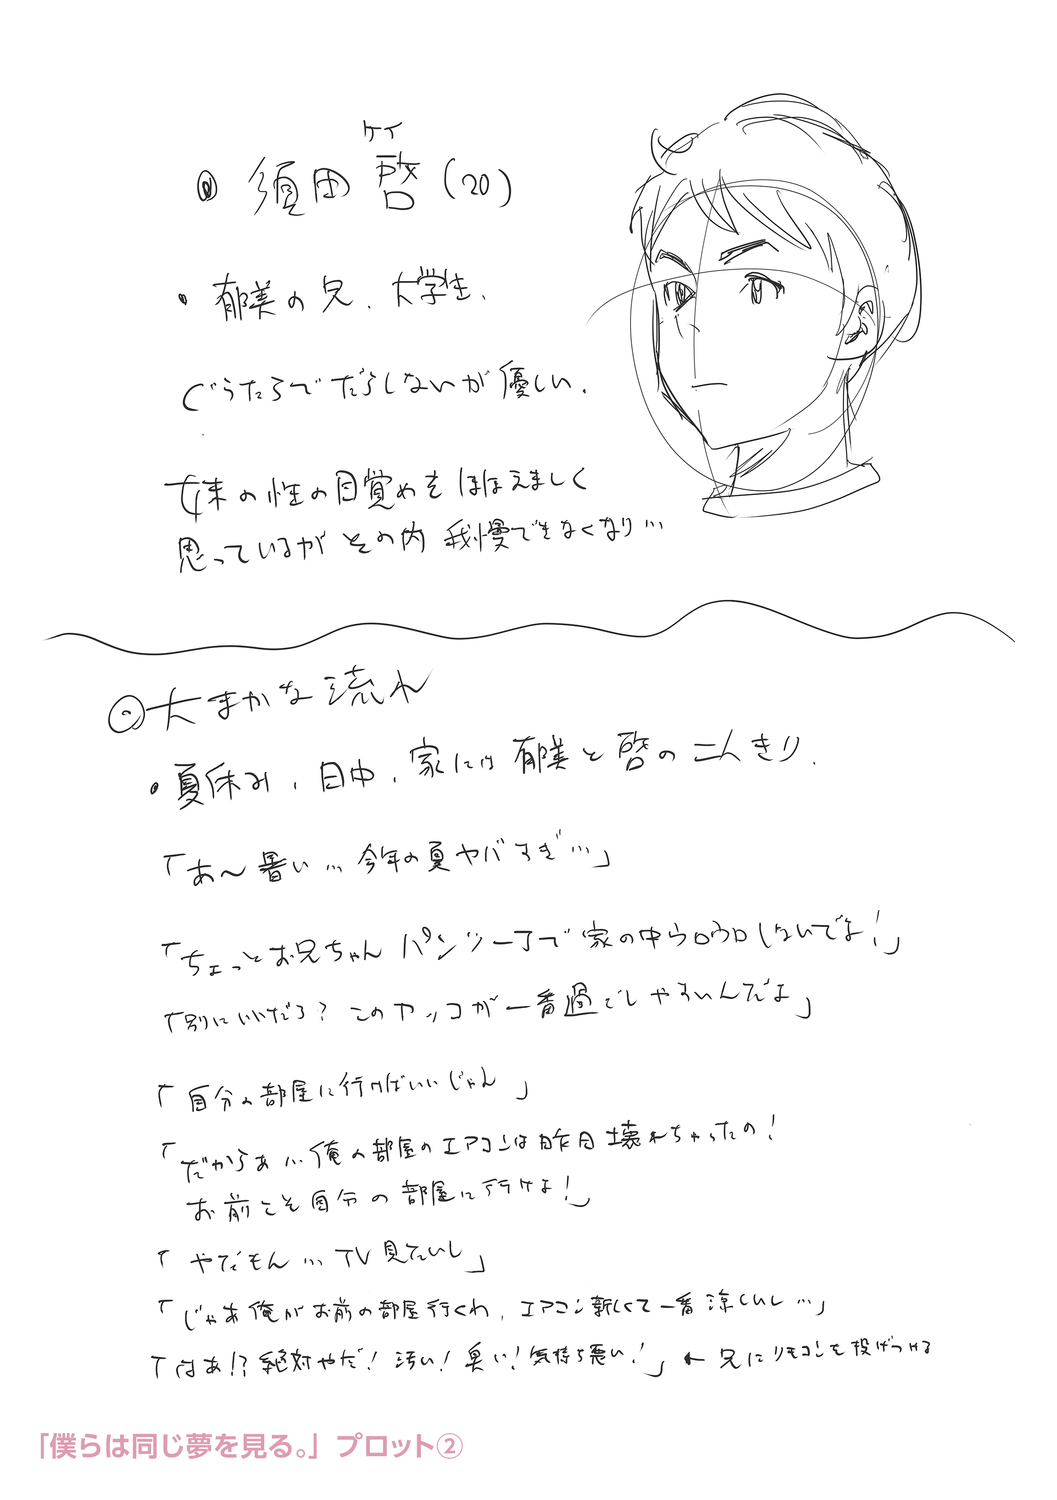 ケイ
◎ 須田 啓 (20)
・郁美の兄、大学生、
ぐうたらでだらしないが優しい.
妹の性の目覚めをほほえましく
思っているがその内我慢できなくなり…
◎大まかな流れ
・夏休み、日中、家には郁美と啓の二人きり.
「あ〜暑い…今年の夏ヤバすぎ…」
「ちょっとお兄ちゃん パンツ一丁で家の中ウロウロしないでよ!」
「別にいいだろ? このカッコが一番過ごしやすいんだよ」
「自分の部屋に行けばいいじゃん」
「だからぁ…俺の部屋のエアコンは昨日壊れちゃったの!
お前こそ自分の部屋に行けよ!」
「やだもん…TV見たいし」
「じゃあ俺がお前の部屋行くわ、エアコン新しくて一番涼しいし…」
「はあ!? 絶対やだ! 汚い! 臭い! 気持ち悪い!」← 兄にリモコンを投げつける
「僕らは同じ夢を見る。」プロット②